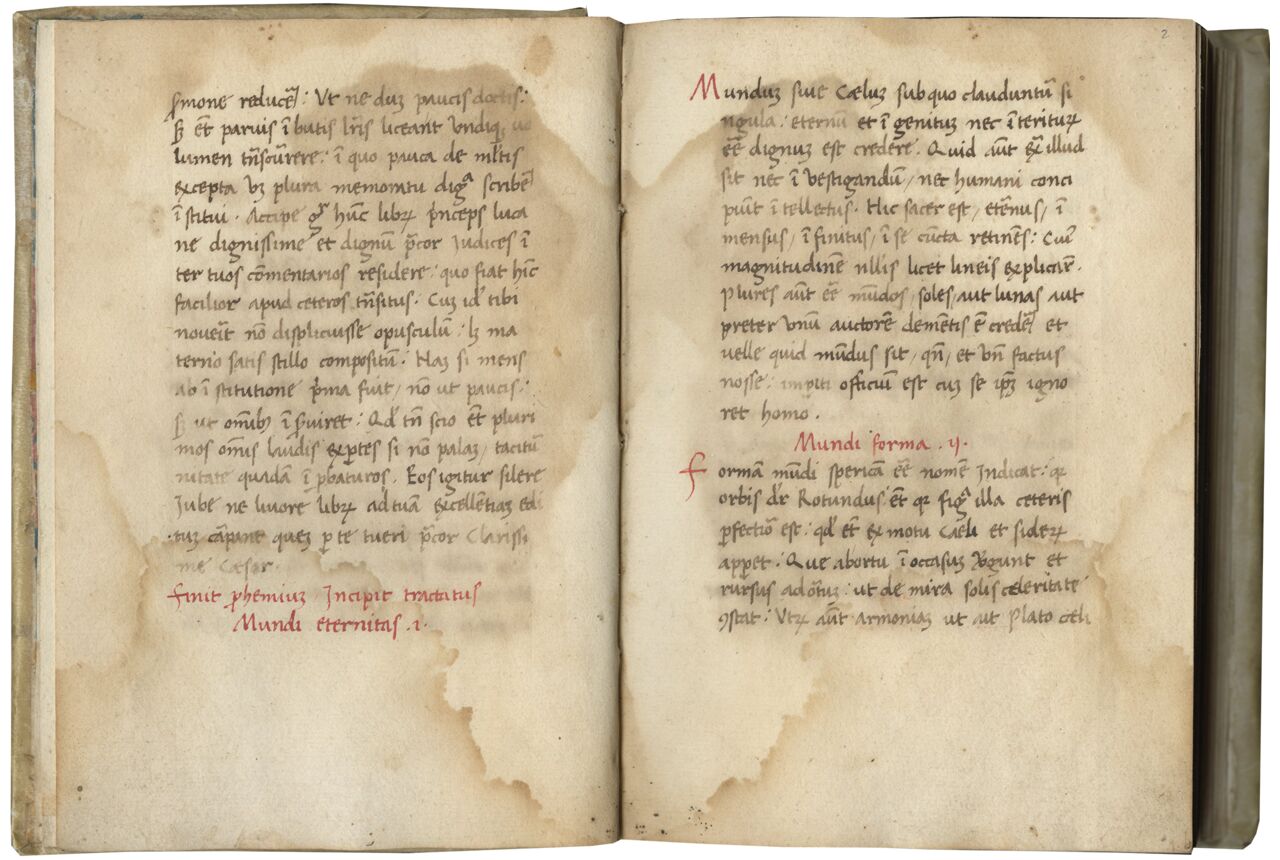 sermone reducē: Vt ne duʒ paucis doctis:
Sʒ ēt paruis ībutis lr̄is liceant vndiqʒ
lumen trn̄scurrere: ī quo pauca de ml̄tis
excepta vʒ plura memoratu digᵃ scribē
īstitui. Accipe gͦ hūc librꝝ p̄nceps luca
ne dignissime et dignum p̄cor Iudices ī
ter tuos cōmentarios residere: quo fiat hīc
facilior apud ceteros trn̄situs. Cuʒ id' tibi
nouerīt nō displicuisse opusculū: lʒ ma
terno satis stillo compositū. Naʒ si mens
ab īstitutione p̄ma fuit/ nō ut paucis:
Sʒ ut om̄ibꝰ īseruiret: Qd' tn̄ scio ēt pluri
mos om̄is laudis exꝑtes si nō palaʒ/ tacitū
nitate quadā īprobaturos. Eos igitur silere
Iube ne liuore librꝝ ad tuā excellētiaʒ edi
tuʒ cārpant queʒ ꝑ te tueri p̄cor Clarissi
me Cæsar.
Finit prohemiuʒ Incipit tractatus
Mundi eternitas .1.
2
Mundus siue Cælus sub quo clauduntū si
ngula: eternū et īgenitus nec īteriturꝝ
eē̄ dignus est credere. Quid aūt ext̄ illud
sit nec īvestigandū/ nec humani conci
piūt ītellectus. Hic sacer est/ etēnus/ ī
mensus/ īfinitus/ ī se cūcta retinēs: Cuī
magnitudinē nllis licet lineis explicarē.
Plures aūt eē̄ mūdos/ soles/ aut lunas aut
preter vnū auctorē demētis ē credē et
velle quid mūdus sit/ qn̄/ et vn̄ factus
nosse: impiti officium est cuʒ se ipʒ igno
ret homo.
Mundi forma .ij.
Formam mūdi spericā eē̄ nomē Indicat: qꝛ
orbis dr̄ Rotundus ēt qꝛ figᵃ illa ceteris
ꝑfectioꝛ est: qd' ēt ex motu Cæli et siderꝝ
apparet. Que ab ortu ī occasuʒ vergunt et
rursus ad ortuʒ: ut de mira solis celeritate
ꝯstat. Vtrꝝ aūt armoniaʒ ut ait Plato celi